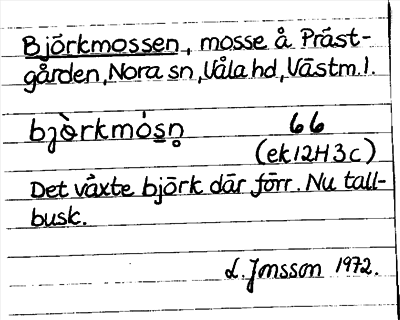 Björkmossen, mosse å Präst-
gården, Nora sn, Våla hd, Västm. l.
bjò̀rkmósn̥ 66
(ek 12H 3c)
Det växte björk där förr. Nu tall-
busk.
L. Jonsson 1972.